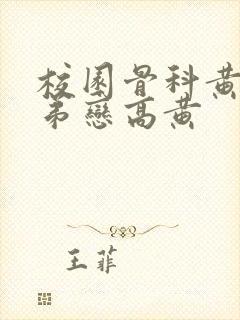 校園骨科黄
弟戀高黄
王菲